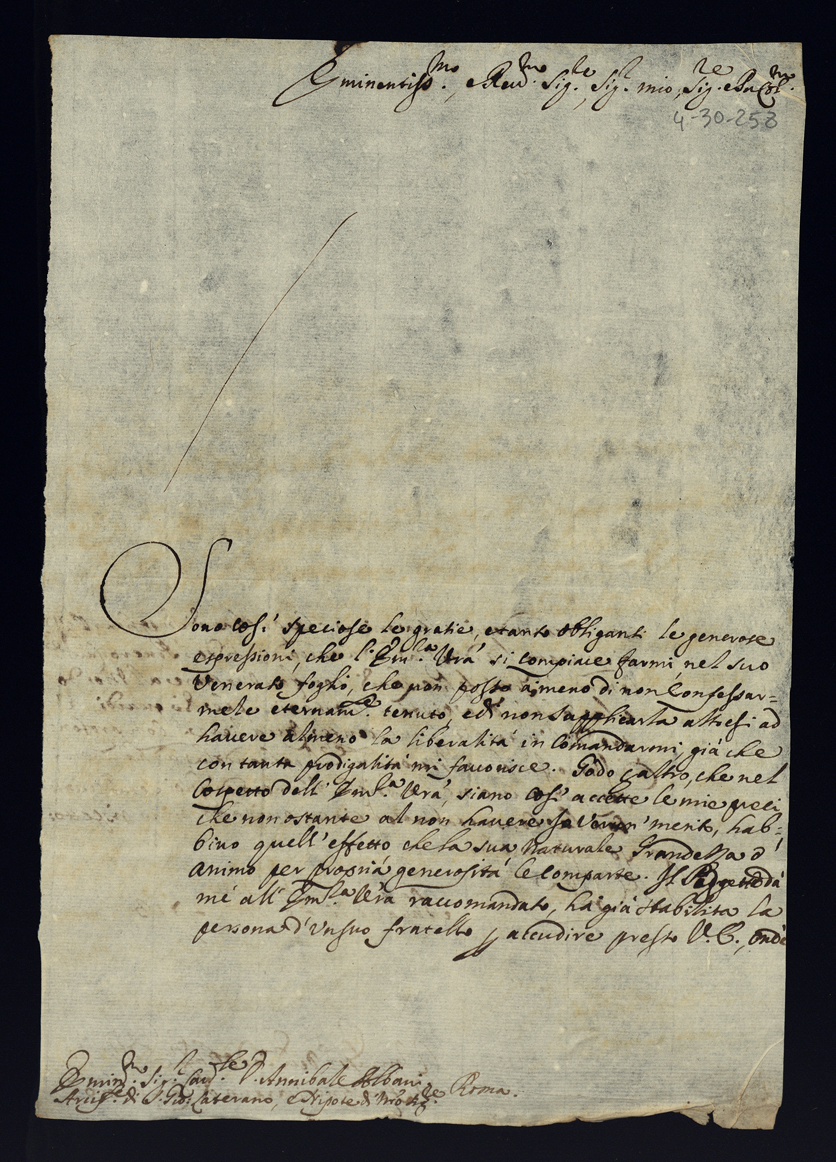 Eminentiss.mo, e Reu.mo Sig.re, Sig.r mio, Sig.re e Pad.
4-30-258
Sono così speciose le gratie, e tanto obbliganti le generose
espressioni, che l'Em.a Vrã si compiace farmi, nel suo
Venerato foglio, che non posso a meno di non Confessar=
mele eternam.te tenuto, e di non supplicarla altresì ad
havere almeno la liberalità in Comandarmi, già che
con tanta prodigalità mi favorisce. Godo p altro, che nel
Cospetto dell'Em.a Vrã, siano così accette le mie preci
che non ostante al non havere in merito, hab=
bino quell'effetto che la sua naturale Grandezza d'
animo per propria generosità le comparte. Il Soggetto dà
mè all'Em.a Vrã raccomandato, hà già stabilita la
persona d'un suo fratello p accudire presto V. E., onde
Emin.mo Sig.r Card.le Annibale Albani
Arcip.e di S. Gio: Laterano, e Nipote di Roma.